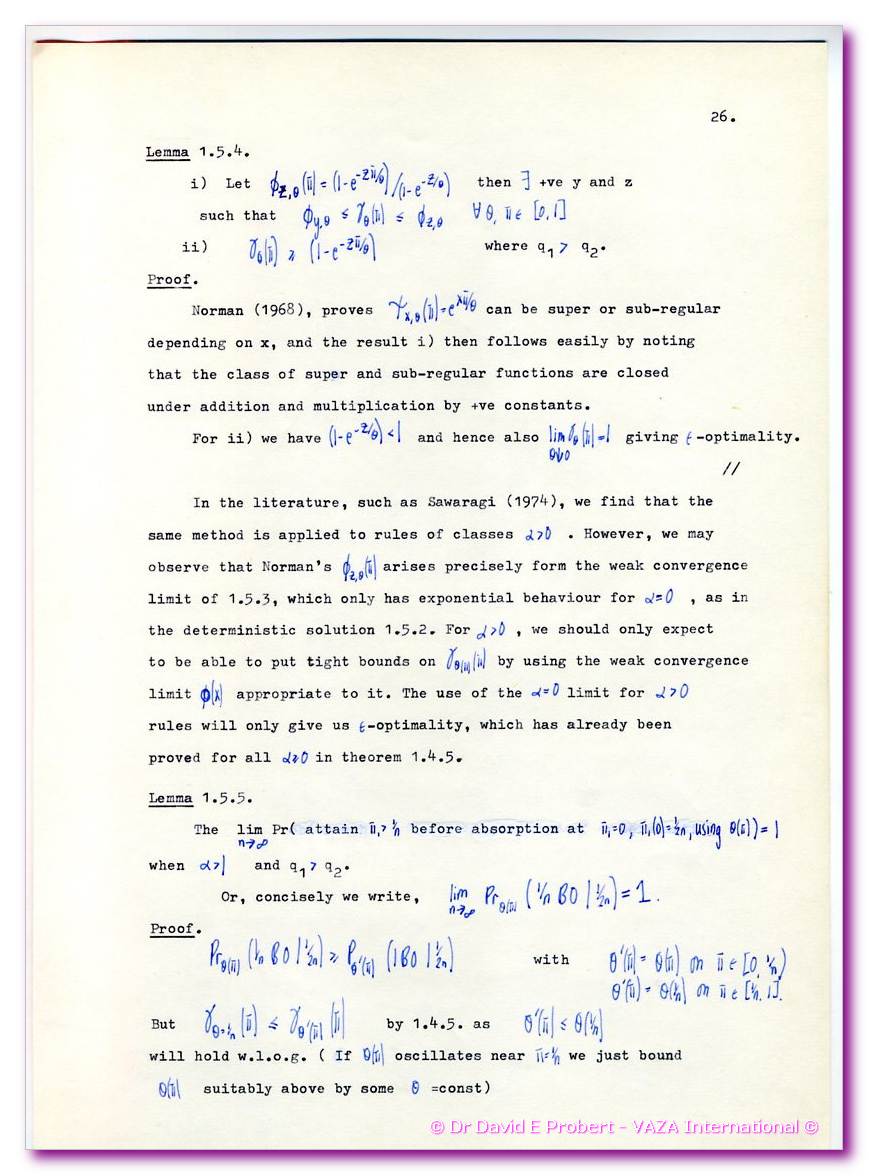 26.
Lemma 1.5.4.
i) Let ϕz,θ(π̄) = (1-e^-zπ̄/θ)/(1-e^-z/θ) then ∃ +ve y and z
such that ϕy,θ ≤ γθ(π̄) ≤ ϕz,θ ∀ θ, π̄ ε [0,1]
ii) γθ(π̄) ≥ (1-e^-zπ̄/θ) where q1 > q2.
Proof.
Norman (1968), proves Ψx,θ(π̄)=e^xπ̄/θ can be super or sub-regular
depending on x, and the result i) then follows easily by noting
that the class of super and sub-regular functions are closed
under addition and multiplication by +ve constants.
For ii) we have (1-e^-z/θ)<1 and hence also lim γθ(π̄)=1 giving ε-optimality.
θ↓0
//
In the literature, such as Sawaragi (1974), we find that the
same method is applied to rules of classes α>0 . However, we may
observe that Norman's ϕz,θ(π̄) arises precisely form the weak convergence
limit of 1.5.3, which only has exponential behaviour for α=0 , as in
the deterministic solution 1.5.2. For α>0 , we should only expect
to be able to put tight bounds on γθ(π̄)(π̄) by using the weak convergence
limit ϕ(x) appropriate to it. The use of the α=0 limit for α>0
rules will only give us ε-optimality, which has already been
proved for all α≥0 in theorem 1.4.5.
Lemma 1.5.5.
The lim Pr( attain π̄1> 1/n before absorption at π̄1=0, π̄1(0)=1/2n, using θ(π̄)) = 1
n→∞
when α>1 and q1 > q2.
Or, concisely we write, lim Prθ(π̄) (1/n BO | 1/2n) = 1.
n→∞
Proof.
Prθ(π̄) (1/n BO | 1/2n) ≥ Pθ'(π̄) (1 BO | 1/2n) with θ'(π̄) = θ(π̄) on π̄ ε [0, 1/n)
θ'(π̄) = θ(1/n) on π̄ ε [1/n, 1].
But γθ=1/n(π̄) ≤ γθ'(π̄)(π̄) by 1.4.5. as θ'(π̄) ≤ θ(1/n)
will hold w.l.o.g. ( If θ(π̄) oscillates near π̄=1/n we just bound
θ(π̄) suitably above by some θ =const)
© Dr David E Probert – VAZA International ©